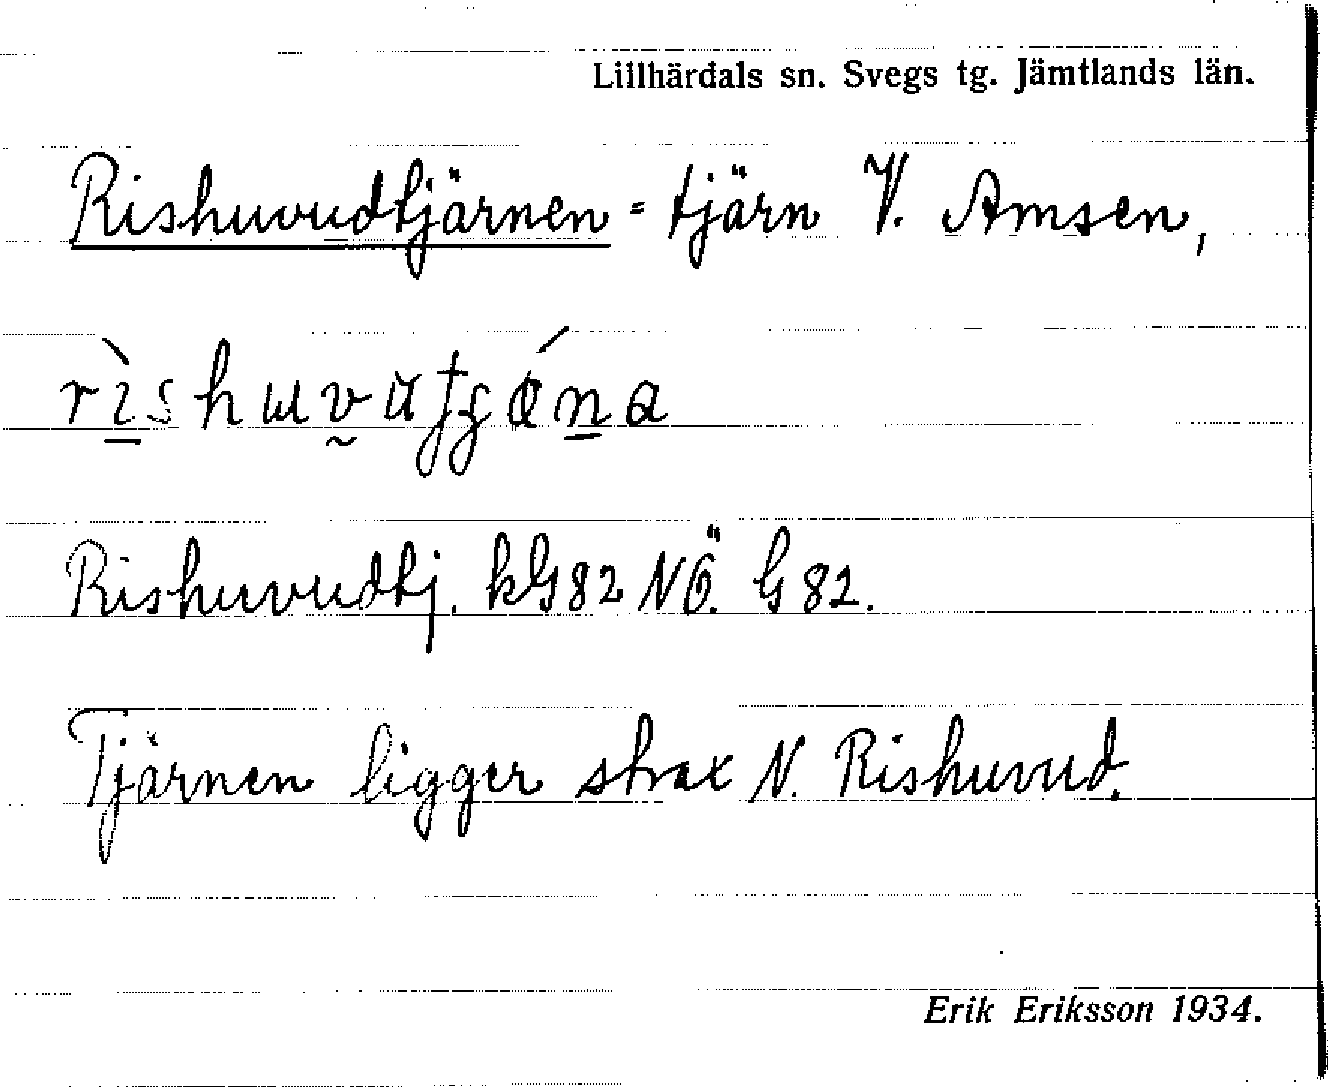 Lillhärdals sn. Svegs tg. Jämtlands län.
Rishuvudtjärnen = tjärn V. Amsen,
Rishuvudtj. kG82 NÖ. G 82.
Tjärnen ligger strax N. Rishuvud.
Erik Eriksson 1934.